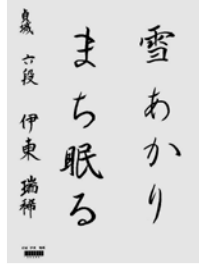 雪あかり
まち眠る
貞城 六段 伊東 瑞稀